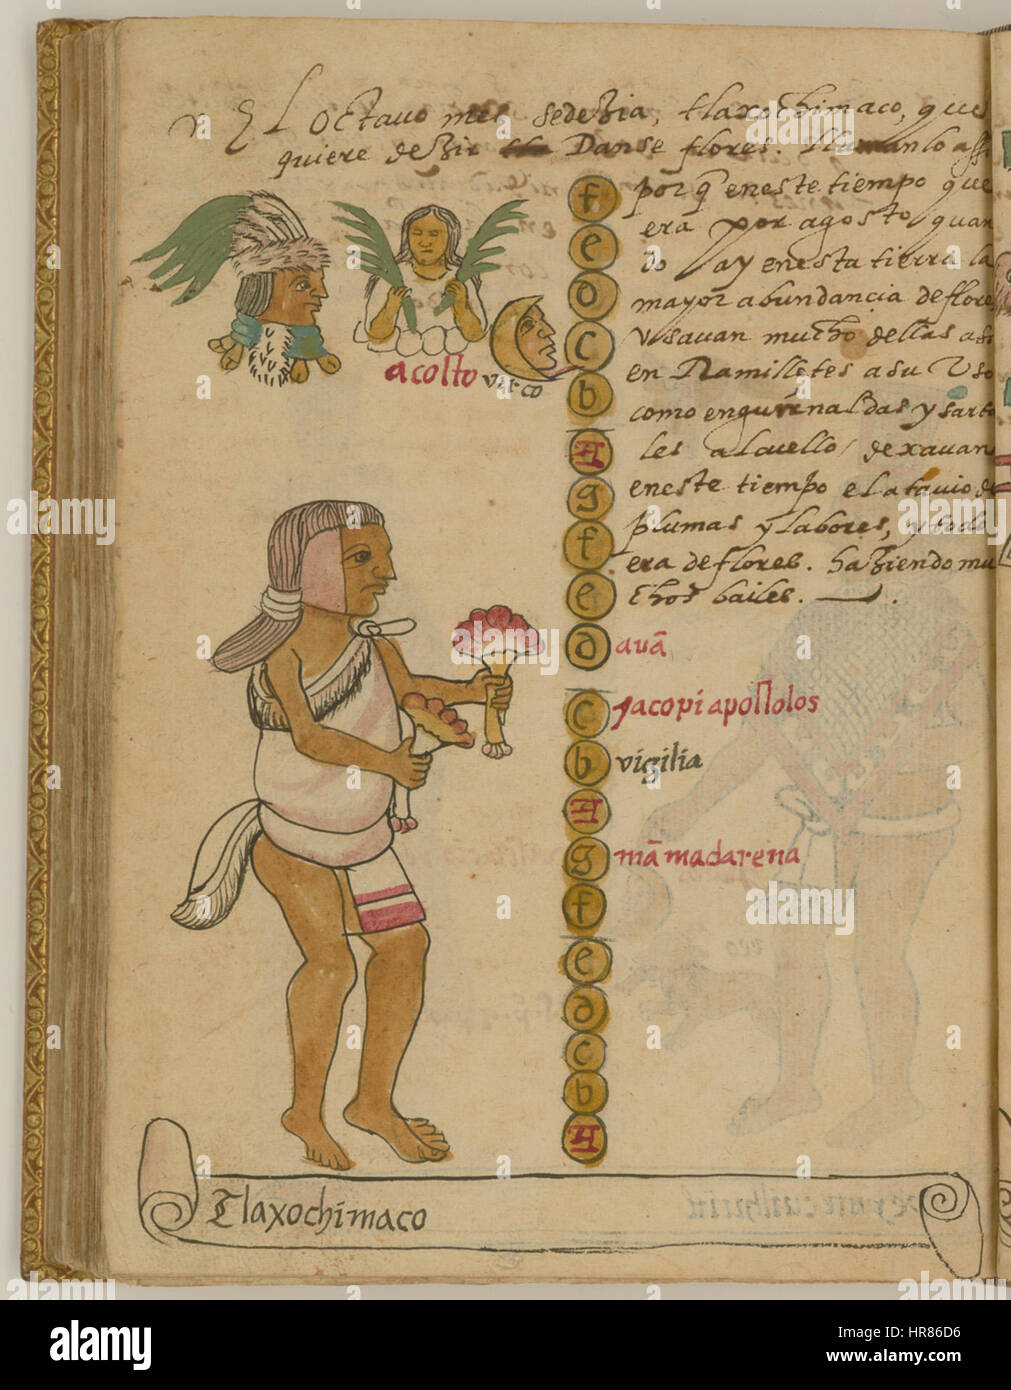 El octavo mes sedezia, tlaxochimaco, que
quiere dezir Danse flores. llamanlo assi
por q̃ eneste tiempo que
era por agosto quan
do ay enesta tierra la
mayor abundancia de flores
Vsavan mucho dellas asi
en Ramilletes a su Vso
como enguirnaldas y sarta
les al cuello, dexavan
eneste tiempo el atavio de
plumas y labores, y todo
era de flores. haziendo mu
chos bailes.
acolto
vitco
f
e
d
c
b
A
g
f
e
d avā
c Jacopi apostolos
b vigilia
A
g mā madarena
f
e
d
c
b
A
Tlaxochimaco
alamy
alamy
Image ID: HR86D6
www.alamy.com